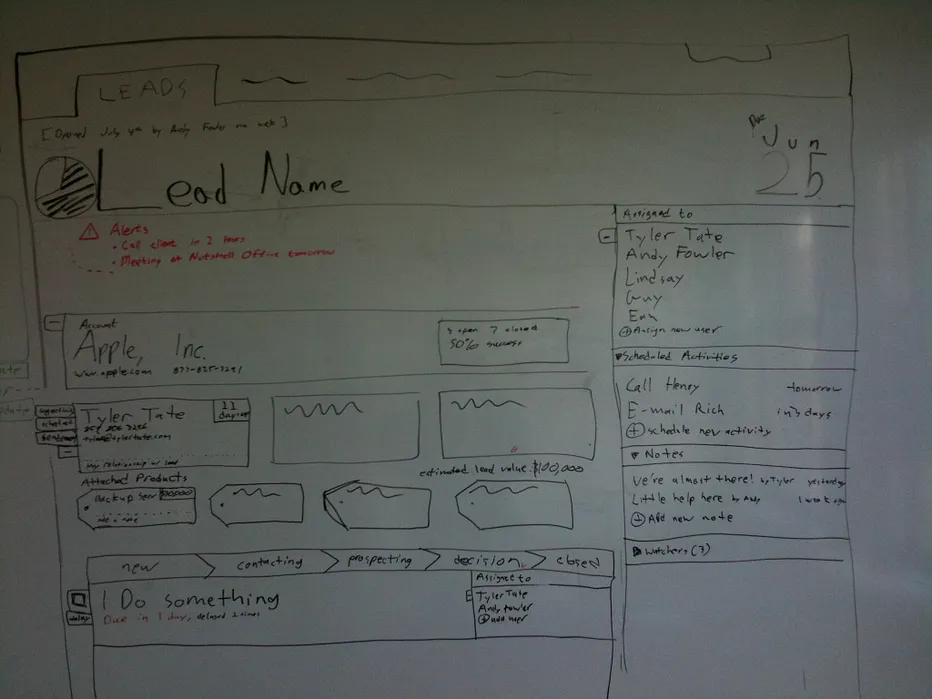 LEADS
[Opened July 4th by Andy Fowler on web]
Due
Jun
25
Lead Name
Alerts
• Call client in 2 hours
• Meeting at Nutshell Office tomorrow
Assigned to
Tyler Tate
Andy Fowler
Lindsay
Guy
+ Assign new user
Account
Apple, Inc.
www.apple.com 877-825-3291
3 open 7 closed
50% success
Scheduled Activities
Call Henry tomorrow
E-mail Rich in 3 days
+ schedule new activity
Notes
We're almost there! by Tyler yesterday
Little help here by Andy 1 week ago
+ Add new note
Watchers (3)
Tyler Tate
11 days
tyler@tylertate.com
My relationship w/ lead
estimated lead value: $100,000
Attached Products
Backup serv
new
contacting
prospecting
decision
closed
I Do something
Due in 1 day, delayed 2 times
delay
Assigned to
Tyler Tate
Andy Fowler
+ add user